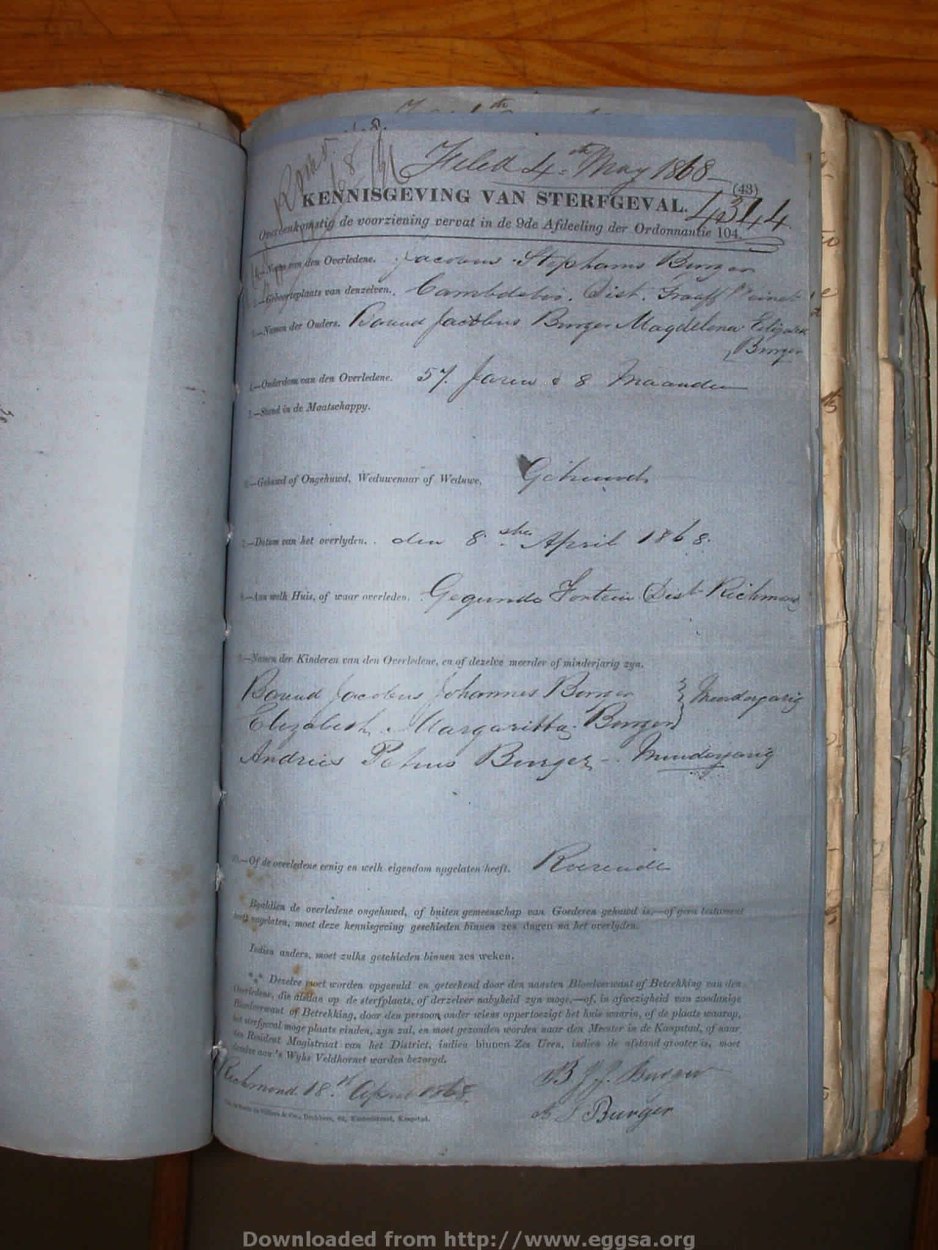 Filed 4th May 1868
(43)
KENNISGEVING VAN STERFGEVAL.
4344
Overeenkomstig de voorziening vervat in de 9de Afdeeling der Ordonnantie 104.
1.—Naam van den Overledene. Jacobus Stephanus Burger
2.—Geboorteplaats van denzelven. Cambdebo. Dist. Graaff Reinet
3.—Namen der Ouders. Barend Jacobus Burger Magdelena
Burger
4.—Ouderdom van den Overledene. 57 Jaren & 8 Maanden
5.—Stand in de Maatschappy.
6.—Gehuwd of Ongehuwd, Weduwenaar of Weduwe, Gehuwd
7.—Datum van het overlyden. den 8ste April 1868.
8.—Aan welk Huis, of waar overleden. Fontein Dist Richmond
9.—Namen der Kinderen van den Overledene, en of dezelve meerder of minderjarig zyn.
Barend Jacobus Johannes Burger
Elizabeth Margaritha Burger
Andries Petrus Burger
10.—Of de overledene eenig en welk eigendom nagelaten heeft. Roerende
Byaldien de overledene ongehuwd, of buiten gemeenschap van Goederen gehuwd is,—of geen testament
heeft nagelaten, moet deze kennisgeving geschieden binnen zes dagen na het overlyden.
Indien anders, moet zulks geschieden binnen zes weken.
*** Dezelve moet worden opgevuld en geteekend door den naasten Bloedverwant of Betrekking van den
Overledene, die alsdan op de sterfplaats, of derzelver nabyheid zyn moge,—of, in afwezigheid van zoodanige
Bloedverwant of Betrekking, door den persoon onder wiens oppertoezigt het huis waarin, of de plaats waarop,
het sterfgeval moge plaats vinden, zyn zal, en moet gezonden worden naar den Meester in de Kaapstad, of naar
den Resident Magistraat van het District, indien binnen Zes Uren, indien de afstand grooter is, moet
dezelve aan 's Wyks Veldkornet worden bezorgd.
Richmond 18 April 1868
B J J. Burger
Burger
Downloaded from http://www.eggsa.org